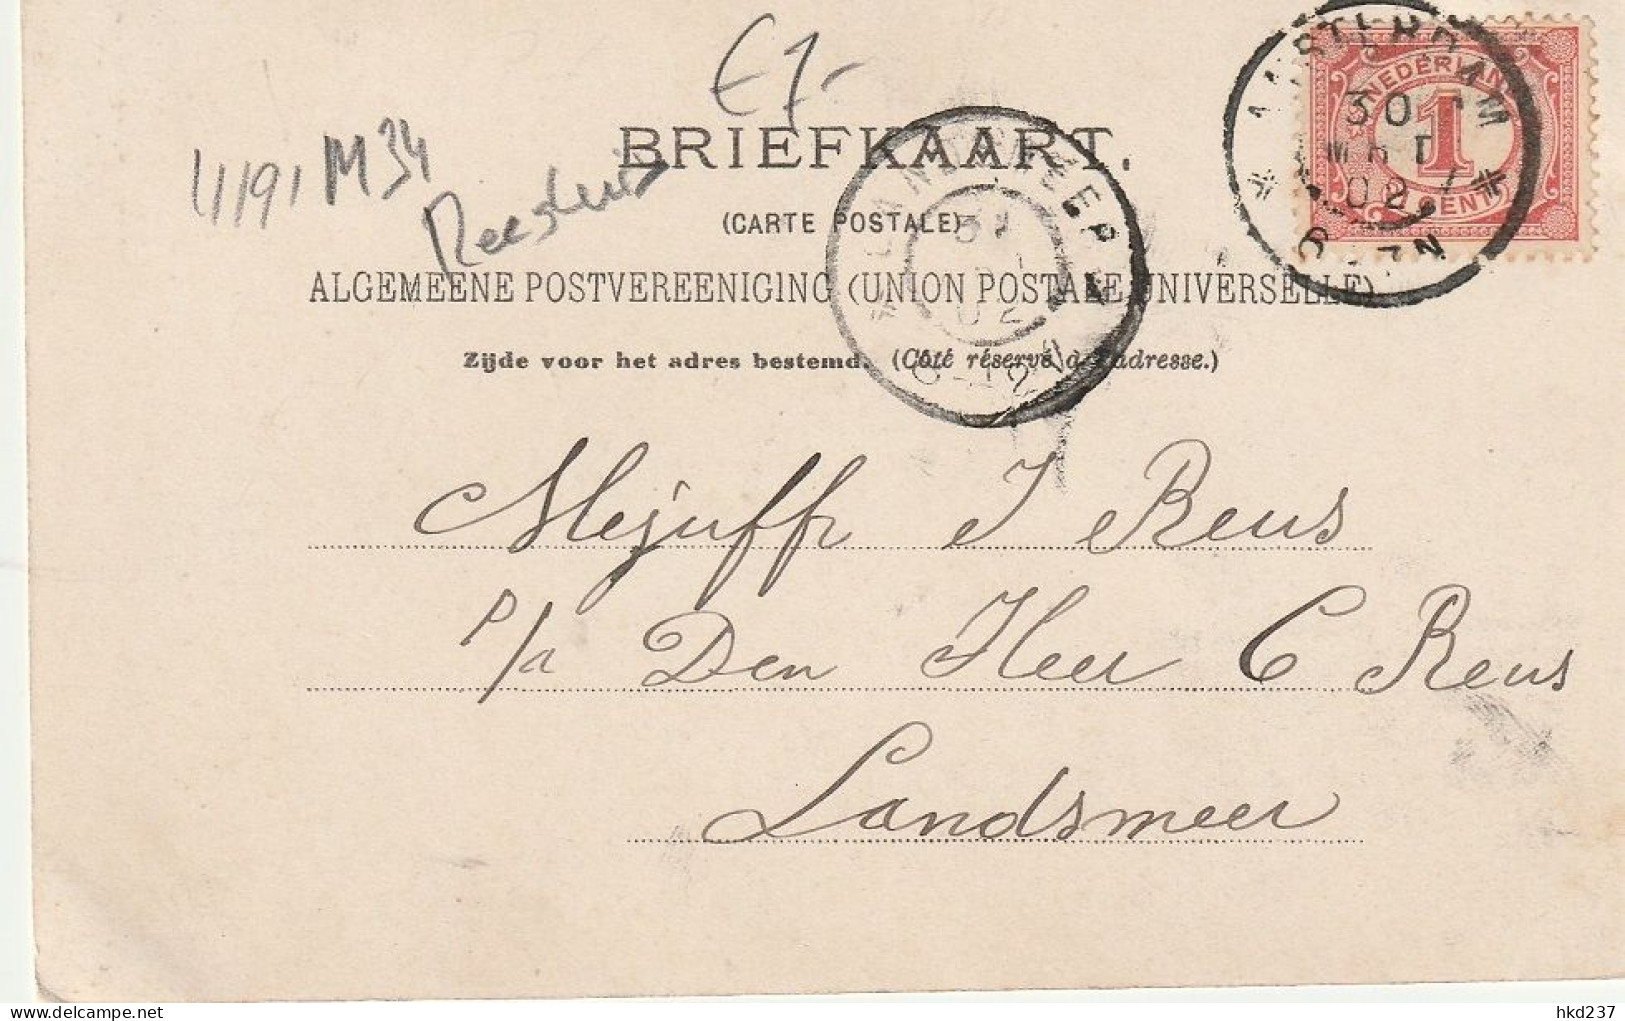 €7,-
AMSTERDAM
30 MRT 02
6-7N
NEDERLAND
1
CENT
4191 M34
BRIEFKAART.
(CARTE POSTALE)
LANDSMEER
31
02
8-12V
ALGEMEENE POSTVEREENIGING (UNION POSTALE UNIVERSELLE)
Zijde voor het adres bestemd. (Côté réservé à l'adresse.)
Mejuffr J Reus
p/a Den Heer C Reus
Landsmeer
hkd237